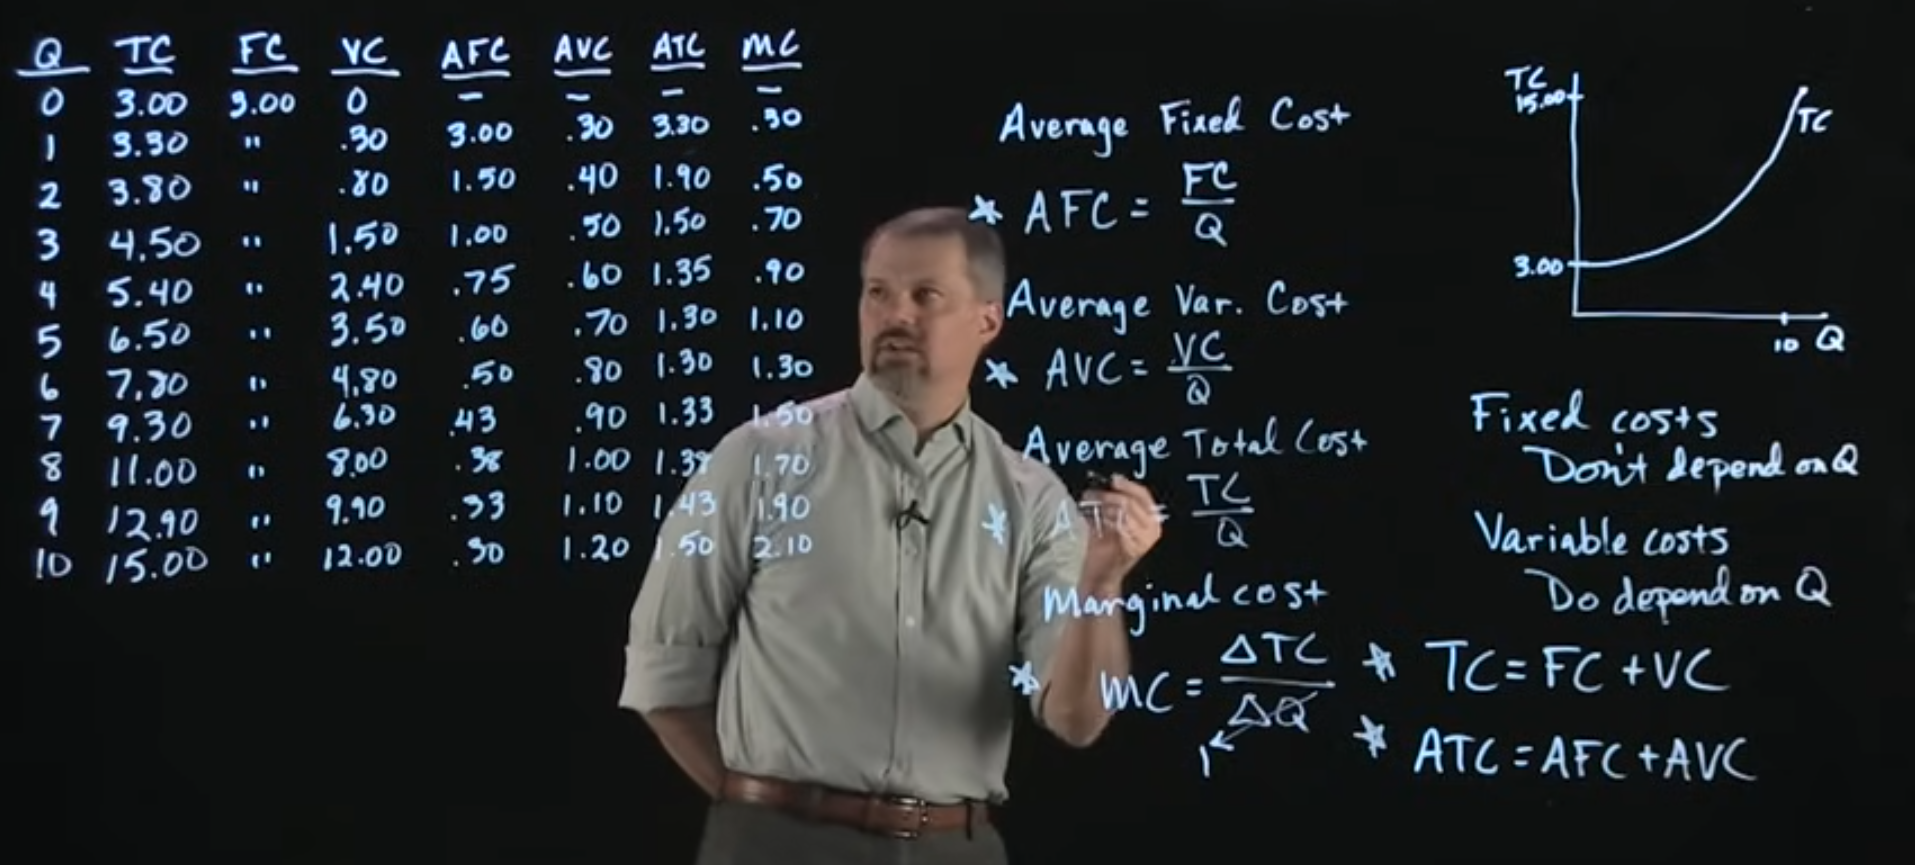 Q TC FC VC AFC AVC ATC MC
0 3.00 3.00 0 – – – –
1 3.30 " .30 3.00 .30 3.30 .30
2 3.80 " .80 1.50 .40 1.90 .50
3 4.50 " 1.50 1.00 .50 1.50 .70
4 5.40 " 2.40 .75 .60 1.35 .90
5 6.50 " 3.50 .60 .70 1.30 1.10
6 7.80 " 4.80 .50 .80 1.30 1.30
7 9.30 " 6.30 .43 .90 1.33 1.50
8 11.00 " 8.00 .38 1.00 1.38 1.70
9 12.90 " 9.90 .33 1.10 1.43 1.90
10 15.00 " 12.00 .30 1.20 1.50 2.10
Average Fixed Cost
* AFC = FC/Q
Average Var. Cost
* AVC = VC/Q
Average Total Cost
* ATC = TC/Q
Marginal cost
* MC = ΔTC/ΔQ
1
TC
15.00
TC
3.00
10 Q
Fixed costs
Don't depend on Q
Variable costs
Do depend on Q
* TC = FC + VC
* ATC = AFC + AVC